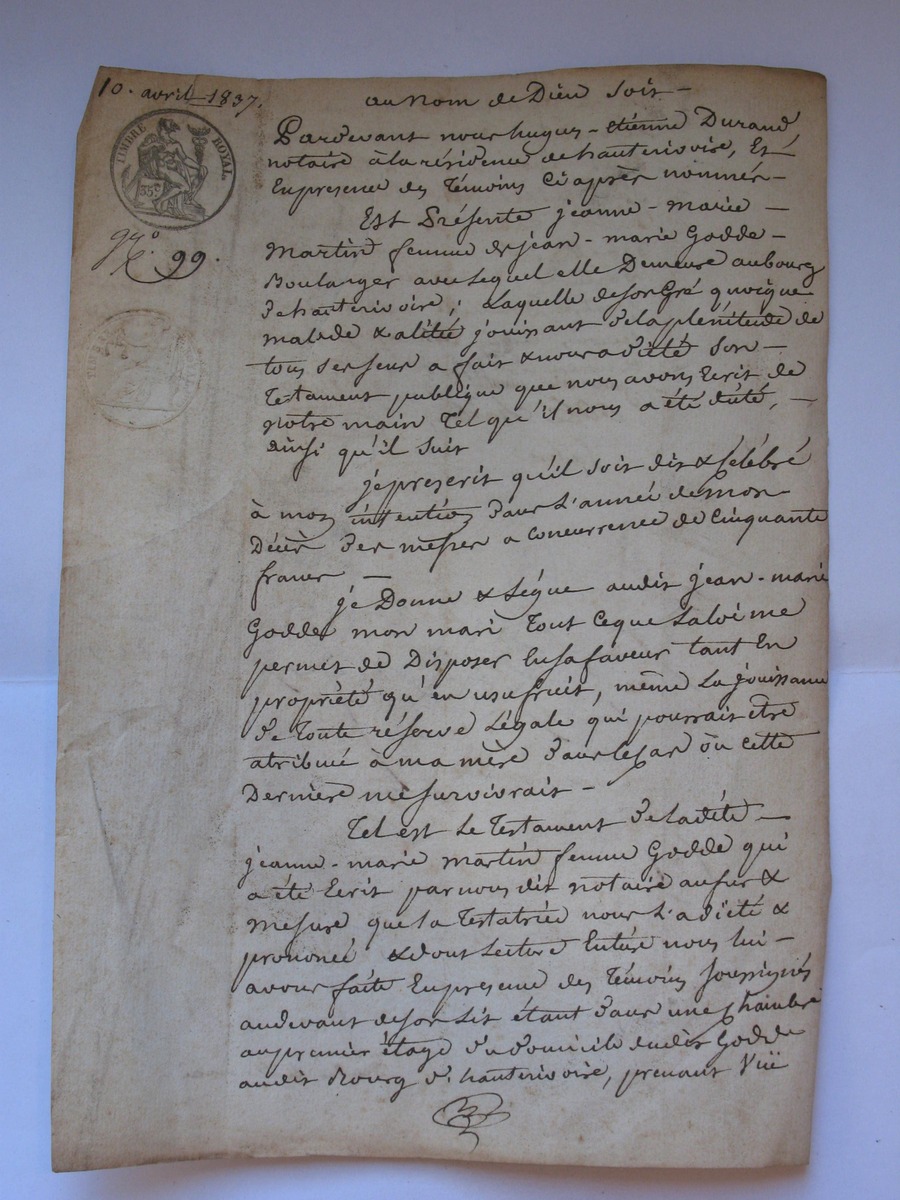 10. avril 1837.
au nom de Dieu soit
TIMBRE ROYAL
35 c
n.° 99.
Pardevant nous hugues-etienne Durand
notaire à la résidence de hauterivoire, Et
En presence des Témoins Ci après nommés
Est Présente jeanne-marie
Martin femme de jean-marie Godde
Boulanger avec lequel elle Demeure au bourg
d'hauterivoire; Laquelle de son Gré quoique
malade & alitée jouissant de la plénitude de
tous ses sens a fait & nous a dicté son
Testament publique que nous avons Ecrit de
notre main Tel qu'il nous a été dicté,
ainsi qu'il suit
je prescrit qu'il soit dit & Célébré
à mon intention dans L'année de mon
Décès des messes a concurrence de Cinquante
francs
je Donne & Légue audit jean-marie
Godde mon mari Tout Ce que La loi me
permet de Disposer En sa faveur tant En
propriété qu'en usufruit, même La jouissance
de Toute réserve Légale qui pourrait être
atribué à ma mère dans le cas où cette
Dernière me survivrait
Tel est Le Testament de ladite
jeanne-marie Martin femme Godde qui
a été Ecrit par nous dit notaire au fur &
Mesure que la Testatrice nous L'a dicté &
prononcé & dont Lecture Entière nous lui
avons faite En presence des Témoins soussignés
au devant de son Lit étant dans une Chambre
au premier étage du domicile dudit Godde
audit Bourg d'hauterivoire, prenant Vüe